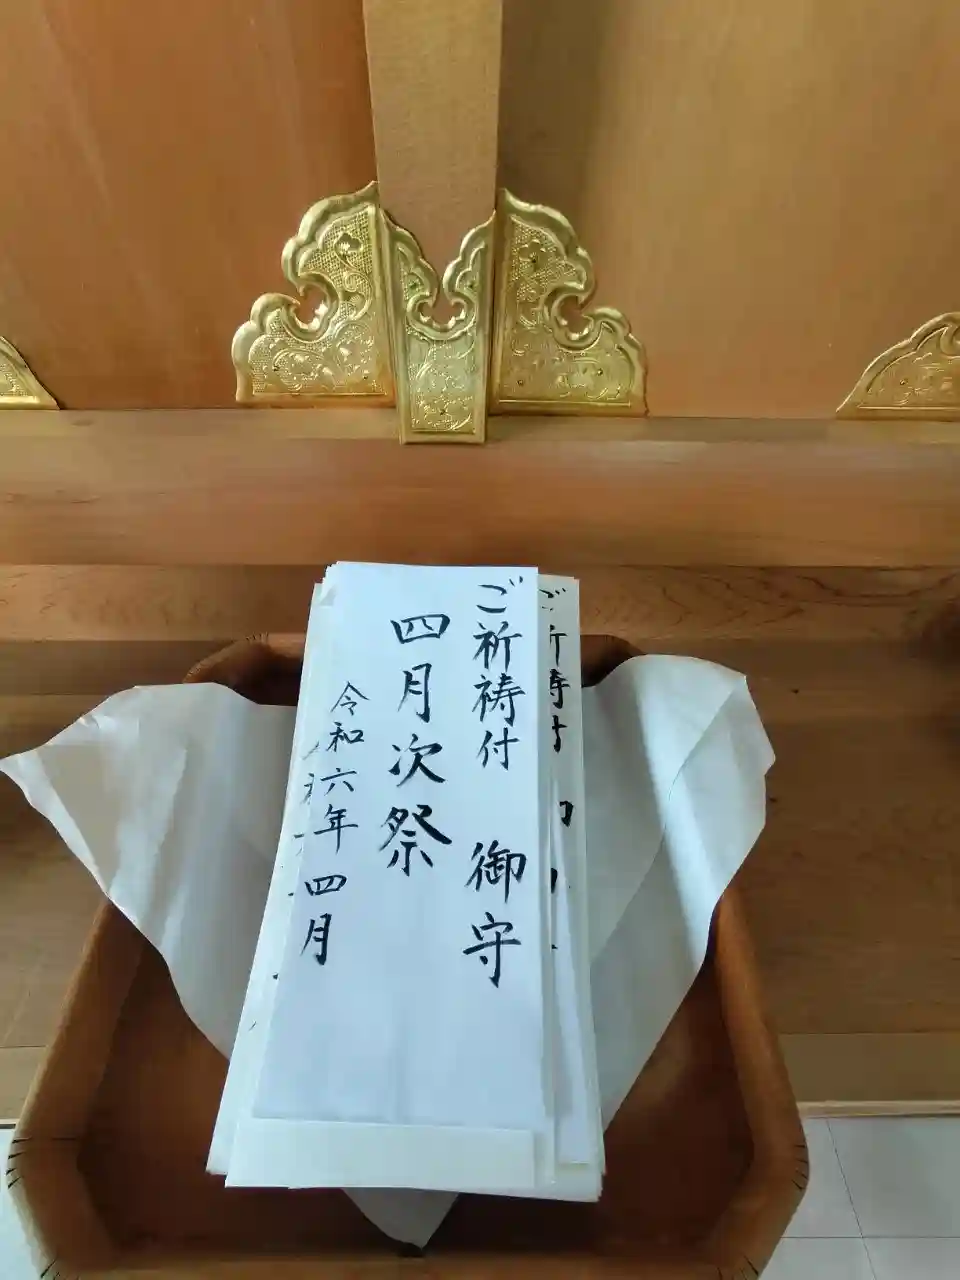 ご祈祷付 御守
四月次祭
令和六年四月
ご祈祷付